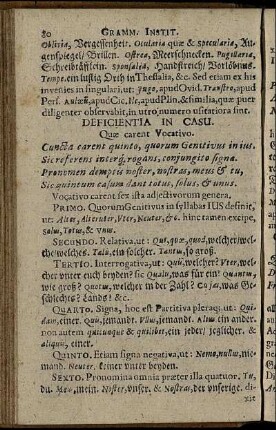 80 GRAMM. INSTIT.
Oblivia, Vergessenheit. Ocularia quæ & specularia, Au-
genspiegel/ Brillen. Ostrea, Meerschnecken. Pugillaria,
Schreibtäfflein. Sponsalia, Handstreich/ Verlöbnus.
Tempe, ein lustig Orth in Thessalia, &c. Sed etiam ex his
invenies in singulari, ut: Juge, apud Ovid. Transtro, apud
Pers. apud Cic. apud Plin. & similia, quæ puer
diligenter observabit, in utro numero usitatiora sint.
DEFICIENTIA IN CASU.
Quæ carent Vocativo.
Cuncta carent quinto, quorum Genitivus in ius.
Sic referens interq; rogans, conjungito signa.
Pronomen demptis noster, nostras, meus & tu,
Sic quintum casum dant totus, solus, & unus.
Vocativo carent sex ista adjectivorum genera.
PRIMO. Quorum Genitivus in syllabas IUS definit,
ut: Alter, Alteruter, Uter, Neuter, &c. hinc tamen excipe,
Solus, Totus, & Unus.
SECUNDO. Relativa, ut: Qui, quæ, quod, welcher/ wel-
che/ welches. Talis, ein solcher. Tantus, so groß.
TERTIO. Interrogativa, ut: Quis, welcher? Uter, wel-
cher unter euch beyden? sic Qualis, was für ein? Quantus,
wie groß? Quotus, welcher in der Zahl? Cujas, was Ge-
schlechts? Lands? &c.
QUARTO. Signa, hoc est Partitiva pleraq; ut: Qui-
dam, einer. Quis, jemandt. Ullus, jemandt. Alius ein ander.
non autem quicunque & quilibet, ein jeder/ jeglicher. &
aliquis, einer.
QUINTO. Etiam signa negativa, ut: Nemo, nullus, nie-
mand. Neuter, keiner unter beyden.
SEXTO. Pronomina omnia præter illa quatuor. Tu,
du. Meus, mein. Noster, unser. & Nostras, der unserige. di-